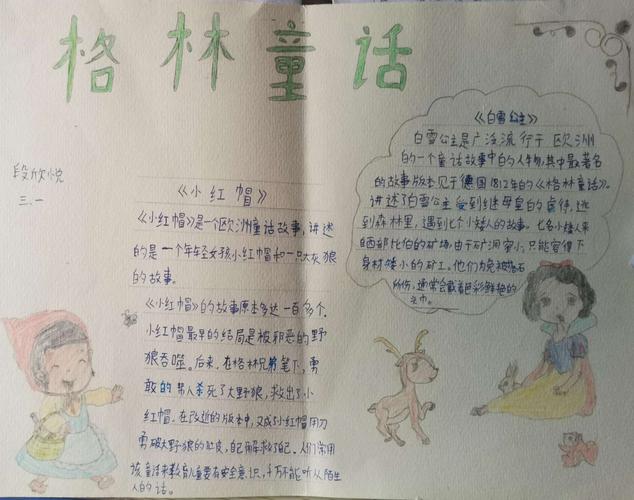 格林童话
段欣悦
三.一
《小红帽》
《小红帽》是个欧洲童话故事,讲述
的是一个年轻女孩小红帽和一只大灰狼
的故事。
《小红帽》的故事原本多达一百多个.
小红帽最早的结局是被邪恶的野
狼吞噬。后来,在格林兄弟笔下,勇
敢的男人杀死了大野狼,救出了小
红帽.在改进的版本中,又成了小红帽用刀
割破大野狼的肚皮,自己解救了自己.人们常用
该童话来教育儿童要有安全意识,千万不能听从陌生
人的话。
《白雪公主》
白雪公主是广泛流行于欧洲
的一个童话故事中的人物,其中最著名
的故事版本见于德国1812年的《格林童话》。
讲述了白雪公主受到继母皇的虐待,逃
到森林里,遇到七个小矮人的故事。七名小矮人来
自西部比伯的矿场,由于矿洞窄小,只能容得下
身材矮小的矿工。他们为免被落石
所伤,通常会戴着色彩鲜艳的
头巾。